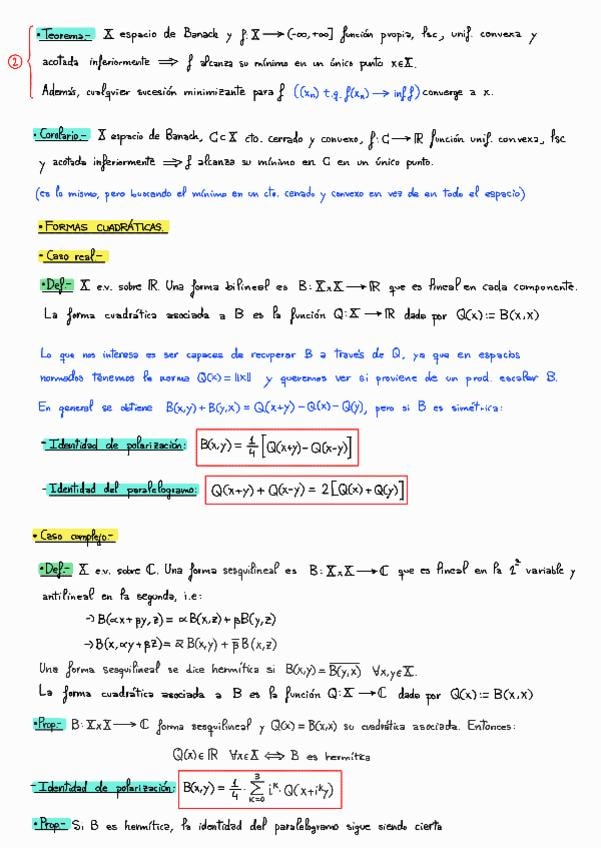 • Teorema.- X espacio de Banach y f: X → (-∞, +∞] función propia, lsc, unif. convexa y
② acotada inferiormente ⟹ f alcanza su mínimo en un único punto x∈X.
Además, cualquier sucesión minimizante para f ((xn) t.q. f(xn) → inf f) converge a x.
• Corolario.- X espacio de Banach, C⊂X cto. cerrado y convexo, f: C → ℝ función unif. convexa, lsc
y acotada inferiormente ⟹ f alcanza su mínimo en C en un único punto.
(es lo mismo, pero buscando el mínimo en un cto. cerrado y convexo en vez de en todo el espacio)
• FORMAS CUADRÁTICAS.
• Caso real.-
• Def.- X e.v. sobre ℝ. Una forma bilineal es B: X×X → ℝ que es lineal en cada componente.
La forma cuadrática asociada a B es la función Q: X → ℝ dada por Q(x) := B(x,x)
Lo que nos interesa es ser capaces de recuperar B a través de Q, ya que en espacios
normados tenemos la norma Q(x) = ||x|| y queremos ver si proviene de un prod. escalar B.
En general se obtiene B(x,y) + B(y,x) = Q(x+y) - Q(x) - Q(y), pero si B es simétrica:
- Identidad de polarización: B(x,y) = 1/4 [Q(x+y) - Q(x-y)]
- Identidad del paralelogramo: Q(x+y) + Q(x-y) = 2[Q(x) + Q(y)]
• Caso complejo.-
• Def.- X e.v. sobre ℂ. Una forma sesquilineal es B: X×X → ℂ que es lineal en la 1ª variable y
antilineal en la segunda, i.e:
→ B(αx + βy, z) = αB(x,z) + βB(y,z)
→ B(x, αy + βz) = ᾱB(x,y) + β̄B(x,z)
Una forma sesquilineal se dice hermítica si B(x,y) = \overline{B(y,x)} ∀x,y∈X.
La forma cuadrática asociada a B es la función Q: X → ℂ dada por Q(x) := B(x,x)
• Prop.- B: X×X → ℂ forma sesquilineal y Q(x) = B(x,x) su cuadrática asociada. Entonces:
Q(x)∈ℝ ∀x∈X ⟺ B es hermítica
- Identidad de polarización: B(x,y) = 1/4 · ∑_{k=0}^{3} i^k · Q(x+i^k y)
• Prop.- Si B es hermítica, la identidad del paralelogramo sigue siendo cierta